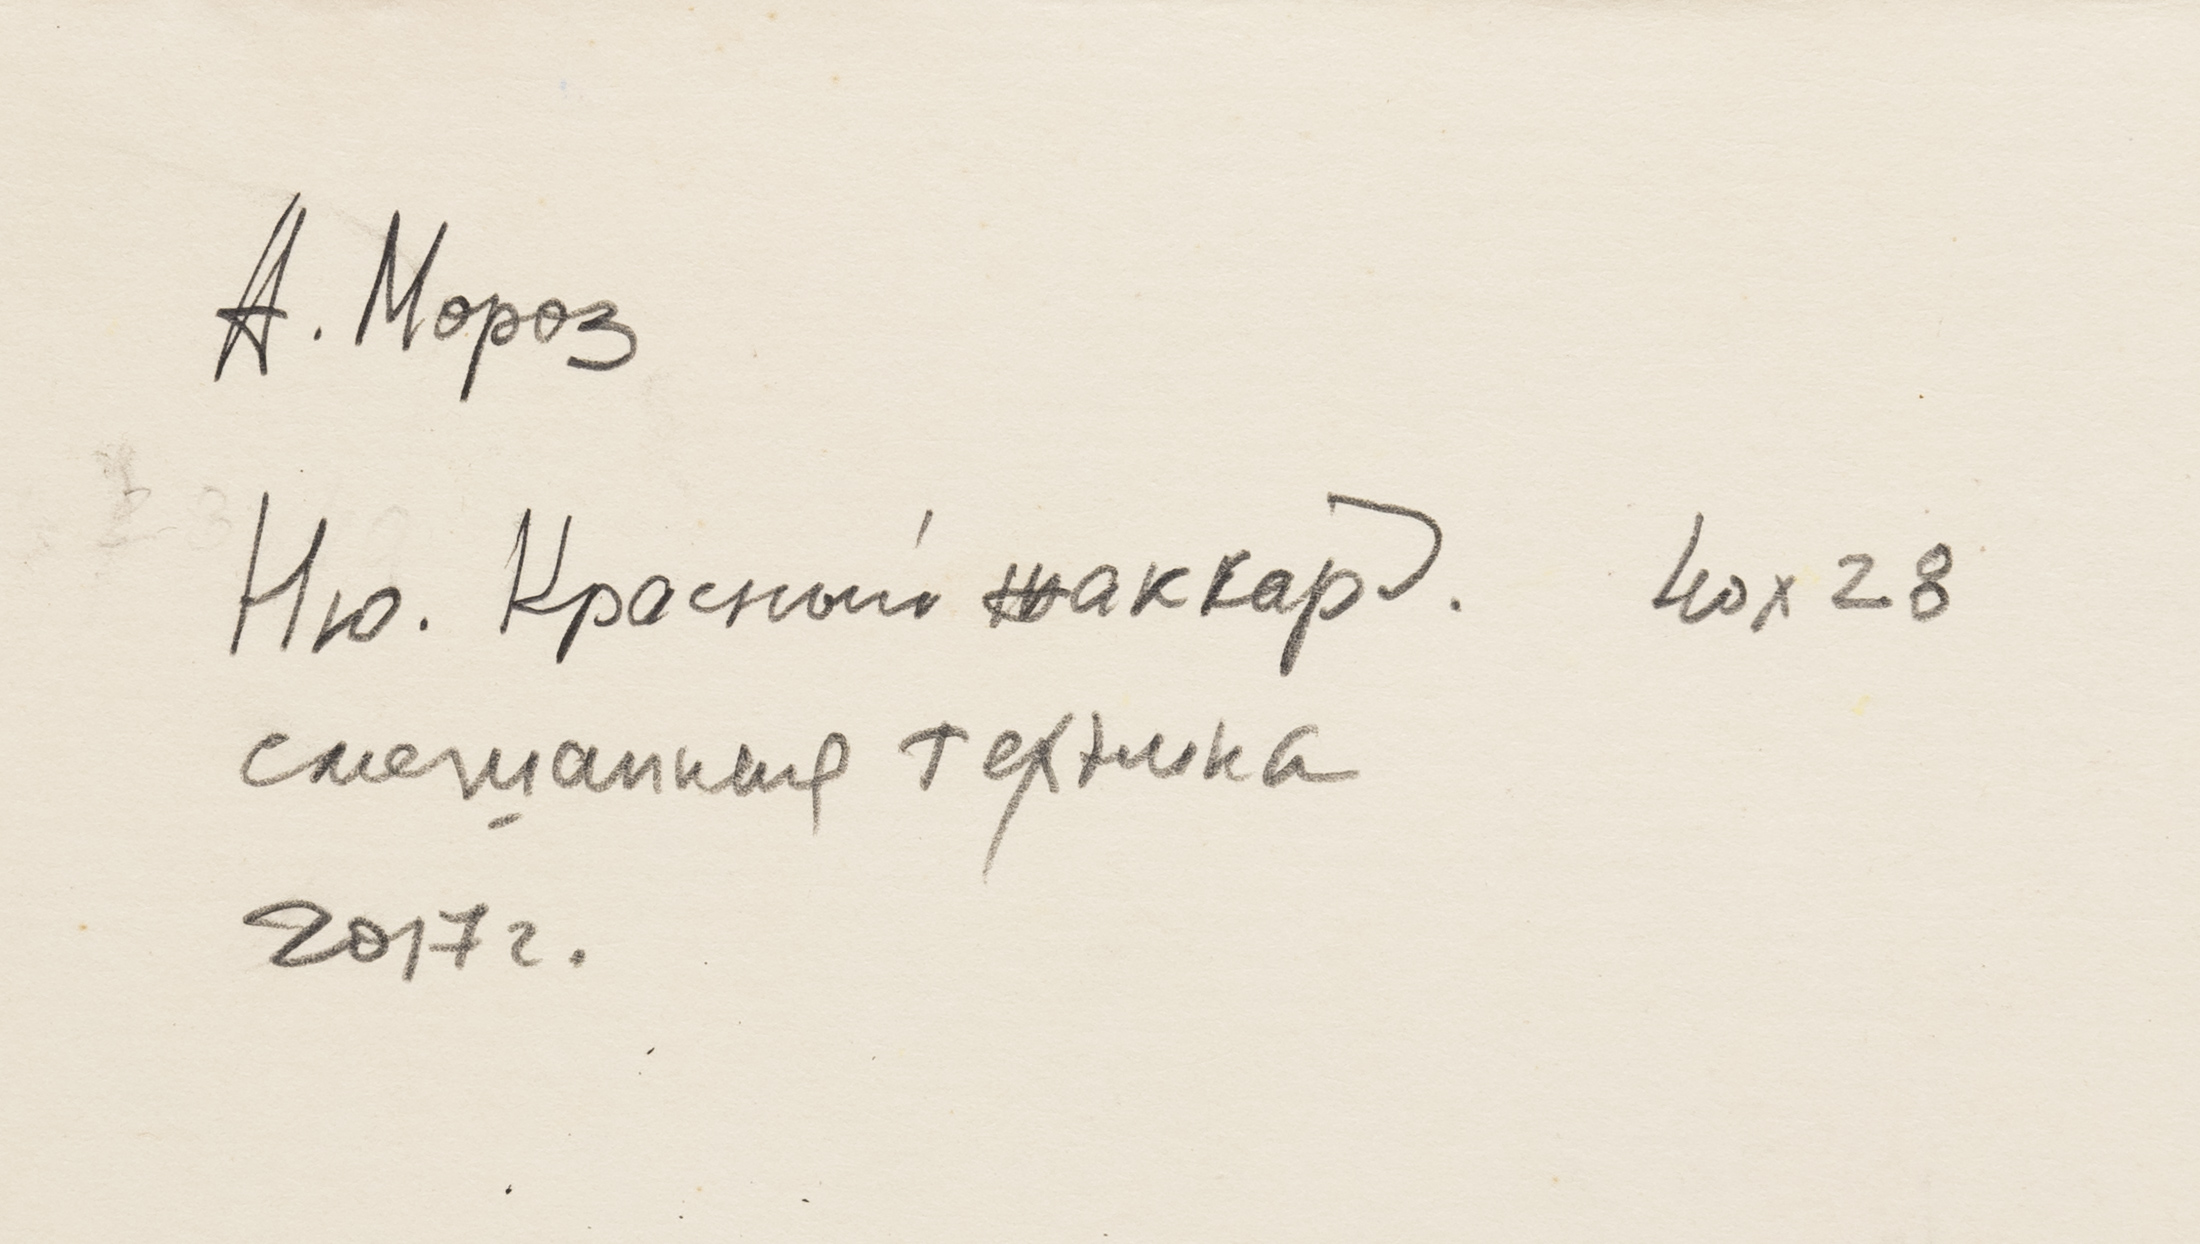 А. Мороз
Ню. Красный жаккард. 40х28
смешанная техника
2017г.